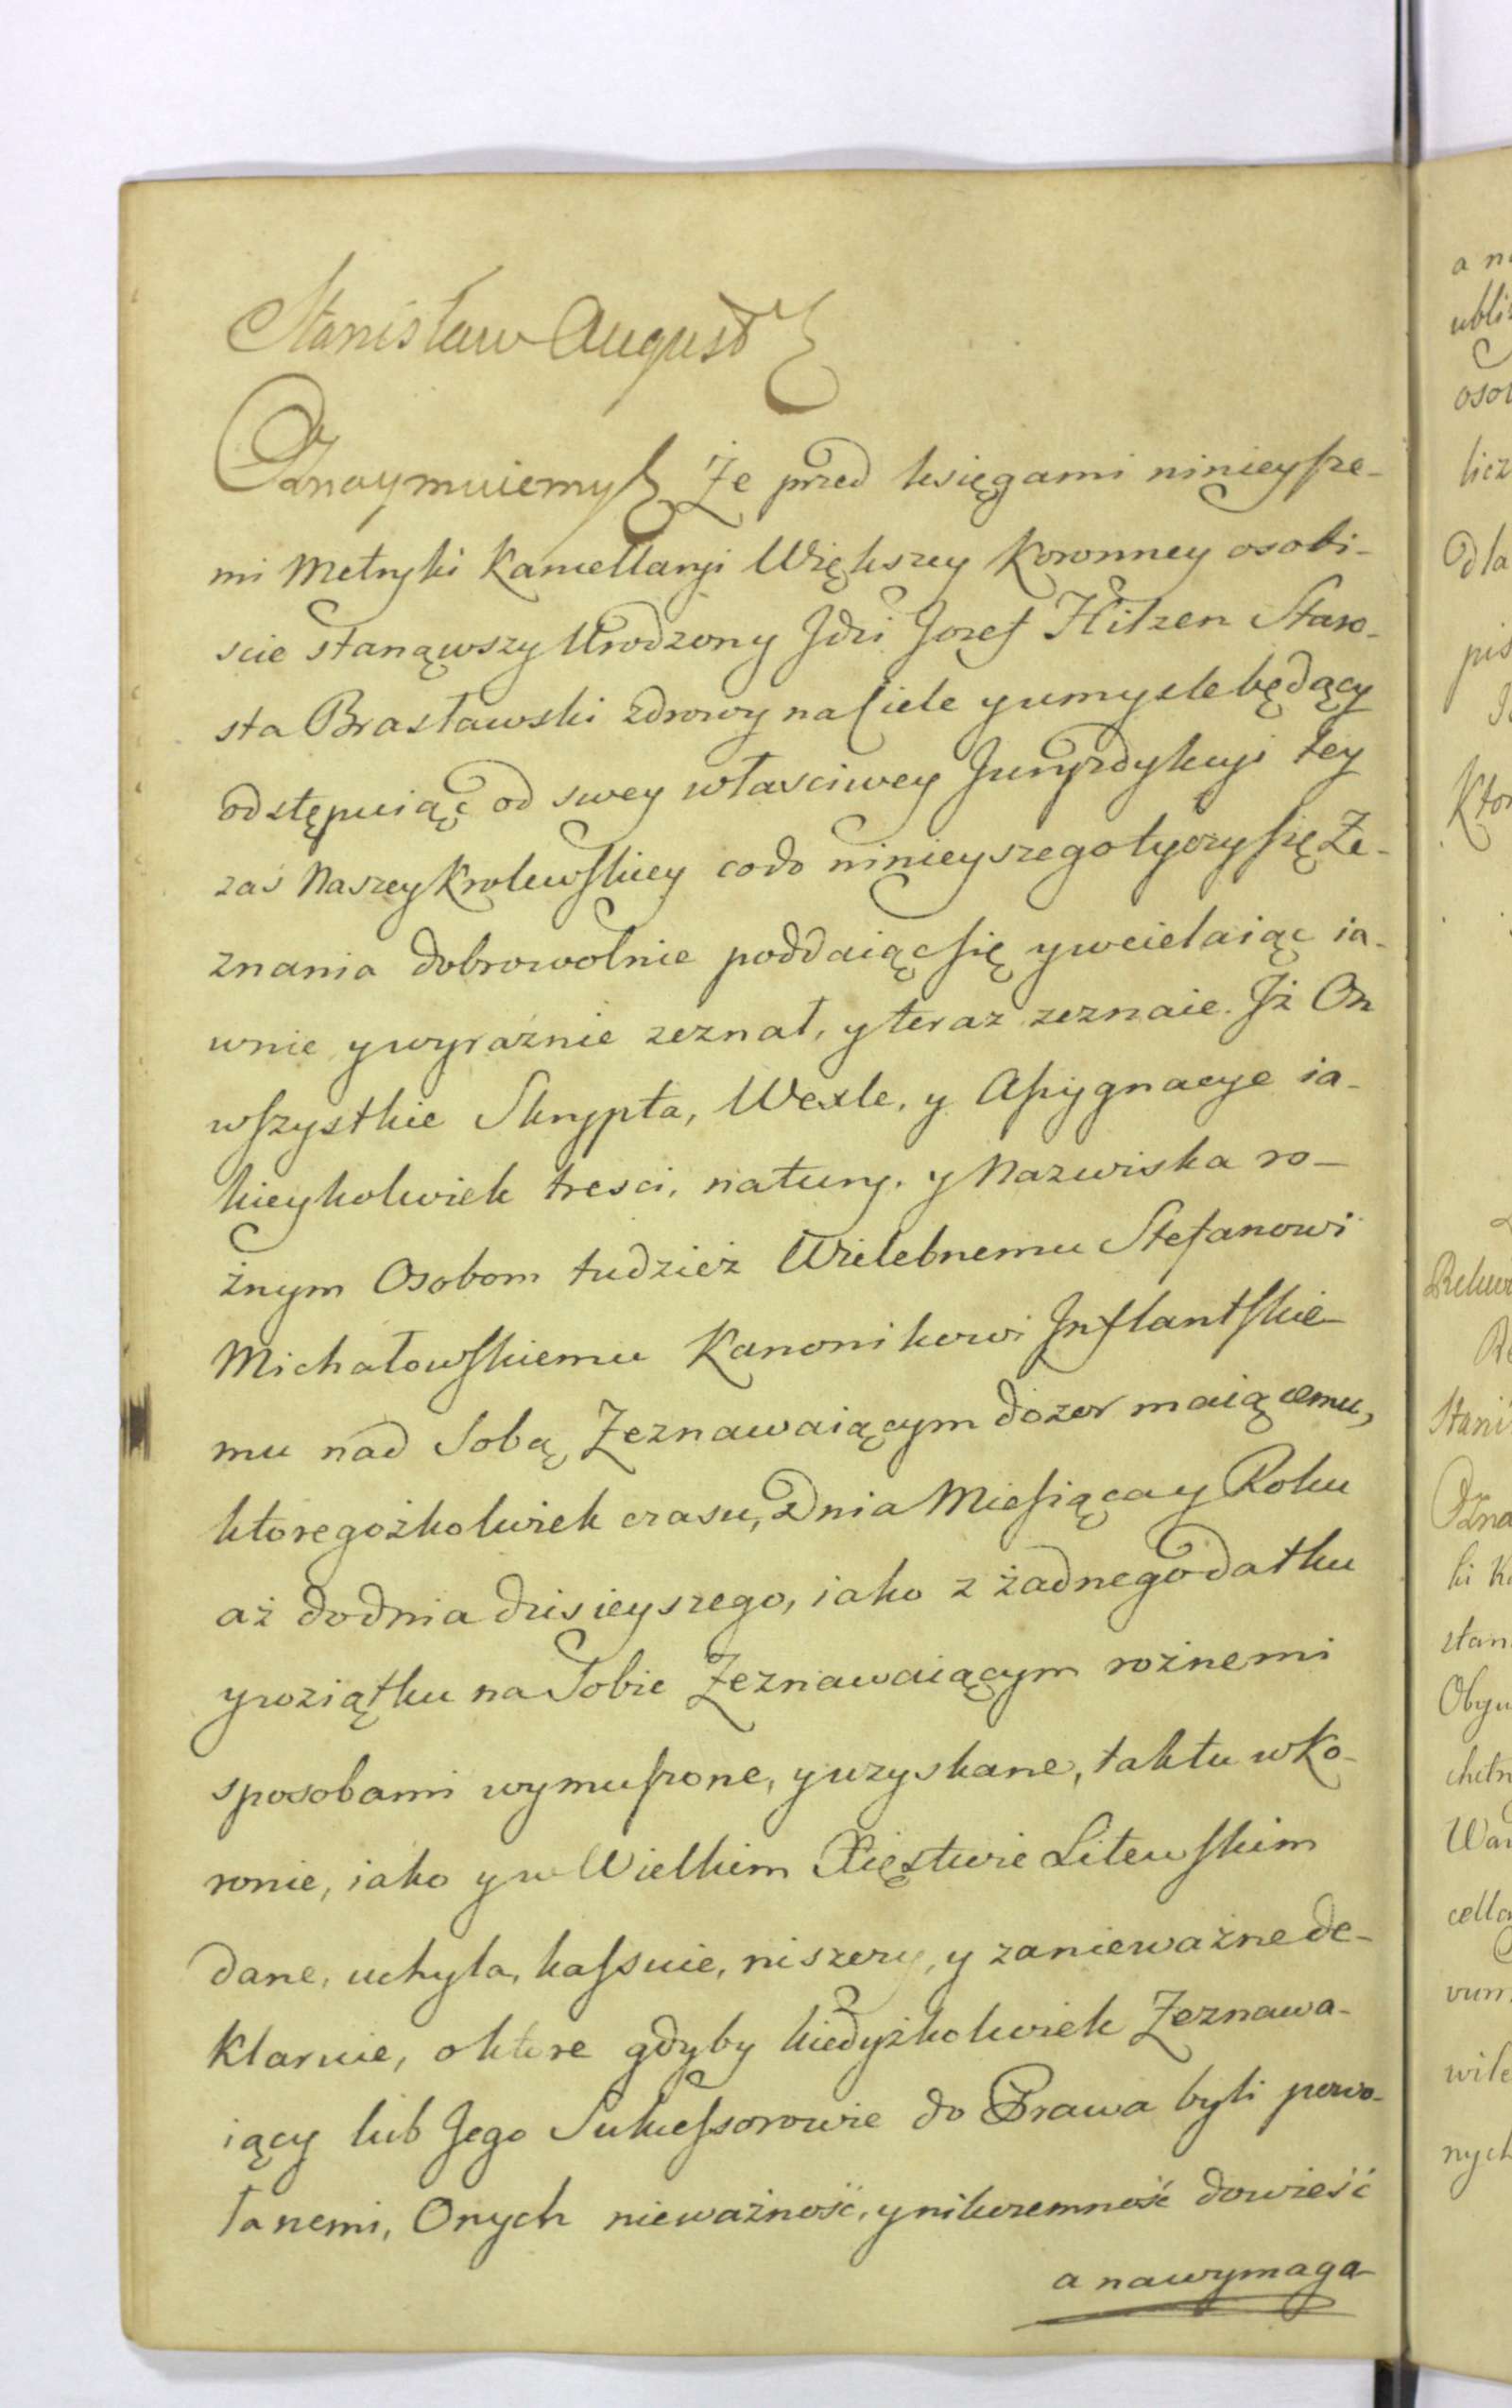 Stanisław August
Oznaymuiemy Że przed księgami ninieysze-
mi Metryki Kancellaryi Większey Koronney osobi-
scie stanąwszy Urodzony Jdzi Jozef Hilzen Staro-
sta Brasławski zdrowy na Ciele y umysle będący
odstępuiąc od swey własciwey Juryzdykcyi tey
zaś Naszey Krolewskiey co do ninieyszego tyczy się Ze-
znania dobrowolnie poddaiąc się y wcielaiąc ia-
wnie y wyraźnie zeznał, y teraz zeznaie. Jż On
wszystkie Skrypta, Wexle, y Assygnacye ia-
kieykolwiek tresci, natury, y Nazwiska ro-
żnym Osobom tudzież Wielebnemu Stefanowi
Michałowskiemu Kanonikowi Inflantskie-
mu nad Sobą Zeznawaiącym dozor maiącemu,
ktoregożkolwiek czasu, Dnia Miesiąca y Roku
aż do dnia dzisieyszego, iako z żadnego datku
y wziątku na Sobie Zeznawaiącym rożnemi
sposobami wymuszone, y uzyskane, tak tu w Ko-
ronie, iako y w Wielkim Xięstwie Litewskim
dane, uchyla, kassuie, niszczy, y za nieważne de-
klaruie, o ktore gdyby kiedyżkolwiek Zeznawa-
iący lub Jego Sukcessorowie do Prawa byli powo-
łanemi, Onych nieważność, y nikczemność dowieść
a na wymaga-